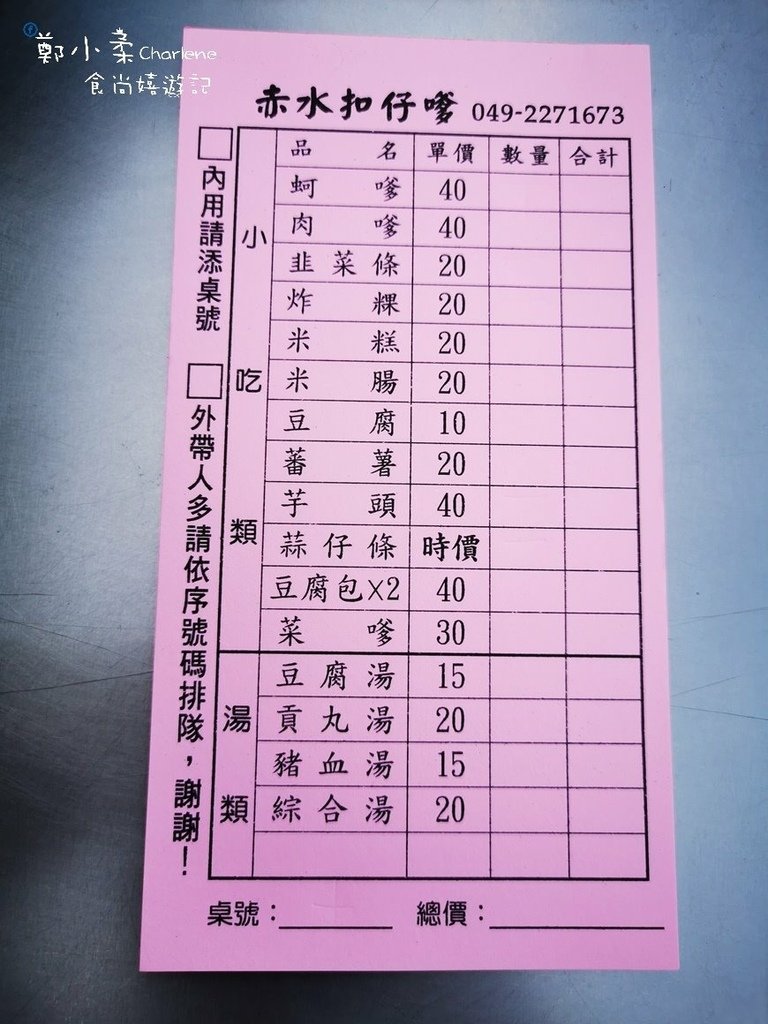 鄭小柔Charlene
食尚嬉遊記
赤水扣仔嗲 049-2271673
品名 單價 數量 合計
小吃類
蚵嗲 40
肉嗲 40
韭菜條 20
炸粿 20
米糕 20
米腸 20
豆腐 10
蕃薯 20
芋頭 40
蒜仔條 時價
豆腐包X2 40
菜嗲 30
湯類
豆腐湯 15
貢丸湯 20
豬血湯 15
綜合湯 20
桌號： 總價：
內用請添桌號
外帶人多請依序號碼排隊，謝謝！